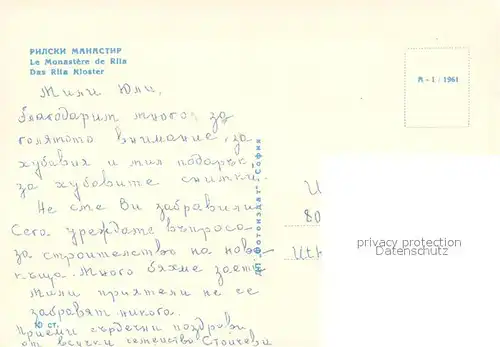 РИЛСКИ МАНАСТИР
Le Monastère de Rila
Das Rila Kloster
М - 1 / 1961
Мили Юли,
благодарим много за
голямото внимание, за
хубавия и мил подарък
за хубавите снимки.
Не сме Ви забравили
Сега уреждаме въпроса
за строителство на нова
къща. Много бяхме заети
Мили приятели не се
забравят никога.
Приеми сърдечни поздрави
от всички семейство Стойчеви
10 ст.
ДП "Фотоиздат" София
80
privacy protection
Datenschutz